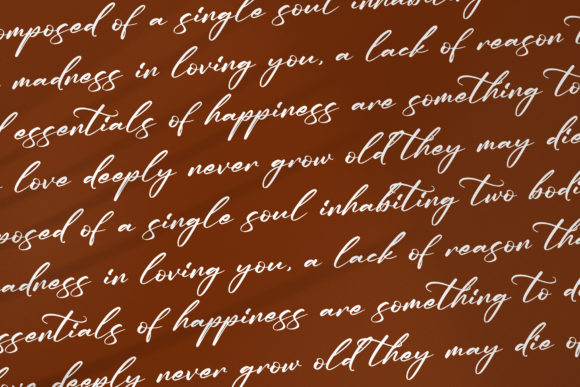 omposed of a single soul inhabiting
madness in loving you, a lack of reason
essentials of happiness are something to
love deeply never grow old they may die
posed of a single soul inhabiting two bodi
adness in loving you, a lack of reason tha
ssentials of happiness are something to d
ove deeply never grow old they may die of